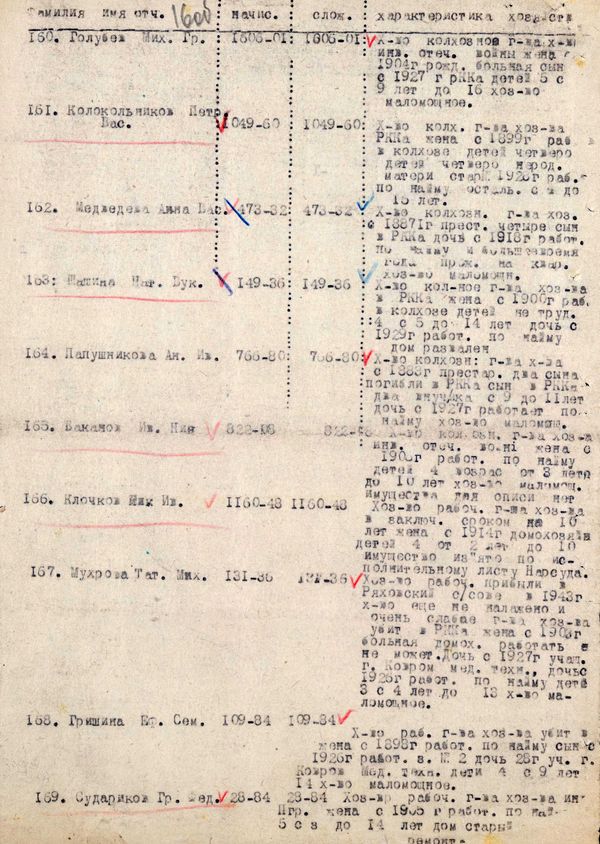 Фамилия имя отч. 1600 начис. слож. характеристика хозяйств
160. Голубев Мих. Гр. 1606-01 1606-01 Х-во колхозное г-ва х-ва
инв. отеч. войны жена с
1904г рожд. больная сын
с 1927 г рККа детей 5 с
9 лет до 16 хоз-во
маломощное.
161. Колокольников Петр
Вас. 1049-60 1049-60 Х-во колх. г-ва хоз-ва
РККа жена с 1899г раб
в колхозе детей четверо
детей четверо народ.
матери стар. 1926г раб.
по найму осталь. с до
15 лет.
162. Медведева Анна Вас. 473-32 473-32 Х-во колхозн. г-ва хоз.
с 1887г прест. четыре сын
в РККа дочь с 1918г работ.
по найму и большевремя
года прож. на квар.
хоз-во маломощн.
163: Шашина Нат. Вук. 149-36 149-36 Х-во кол-ное г-ва хоз-ва
в РККа жена с 1900г раб
в колхозе детей не труд.
4 с 5 до 14 лет дочь с
1929г работ. по найму
дом развален
164. Папушникова Ан. Ив. 766-80 766-80 Х-во колхозн: г-ва х-ва
с 1883г престар. два сына
погибли в РККа сын в РККа
два внучка с 9 до 11лет
дочь с 1927г работает по
найму хоз-во маломощ.
165. Баканов Ив. Ник 822-08 822-08 Х-во колхозн. г-ва хоз-ва
инв. отеч. войны жена с
1906г работ. по найму
детей 4 возрас от 3 лет
до 10 лет хоз-во маломощ.
имущества для описи нет
166. Клочков Ник Ив. 1160-48 1160-48 Хоз-во рабоч. г-ва хоз-ва
в заключ. сроком на 10
лет жена с 1914г домохозяйн
детей 4 от 2 лет до 10
имущество из"ято по ис-
полнительному листу Нарсуда.
167. Мухрова Тат. Мих. 131-36 131-36 Хоз-во рабоч. прибыли в
Ряховский с/сове в 1943г
х-во еще не налажено и
очень слабае г-ва хоз-ва
убит в РККа жена с 1903г
больная домох. работать
не может.Дочь с 1927г учащ.
г. Ковром мед. техн., дочьс
1926г работ. по найму дете
3 с 4 лет до 13 х-во ма-
ломощное.
168. Гришина Еф. Сем. 109-84 109-84
Х-во раб. г-ва хоз-ва убит в
жена с 1898г работ. по найму сын с
1926г работ. з. № 2 дочь 28г уч. г.
Ковров Мед. техн. дети 4 с 9 лет
14 х-во маломощное.
169. Судариков Гр. Фед. 28-84 28-84 Хоз-вр рабоч. г-ва хоз-ва ин
Пгр. жена с 1905 г работ. по най-
5 с з до 14 лет дом старый
ремонта